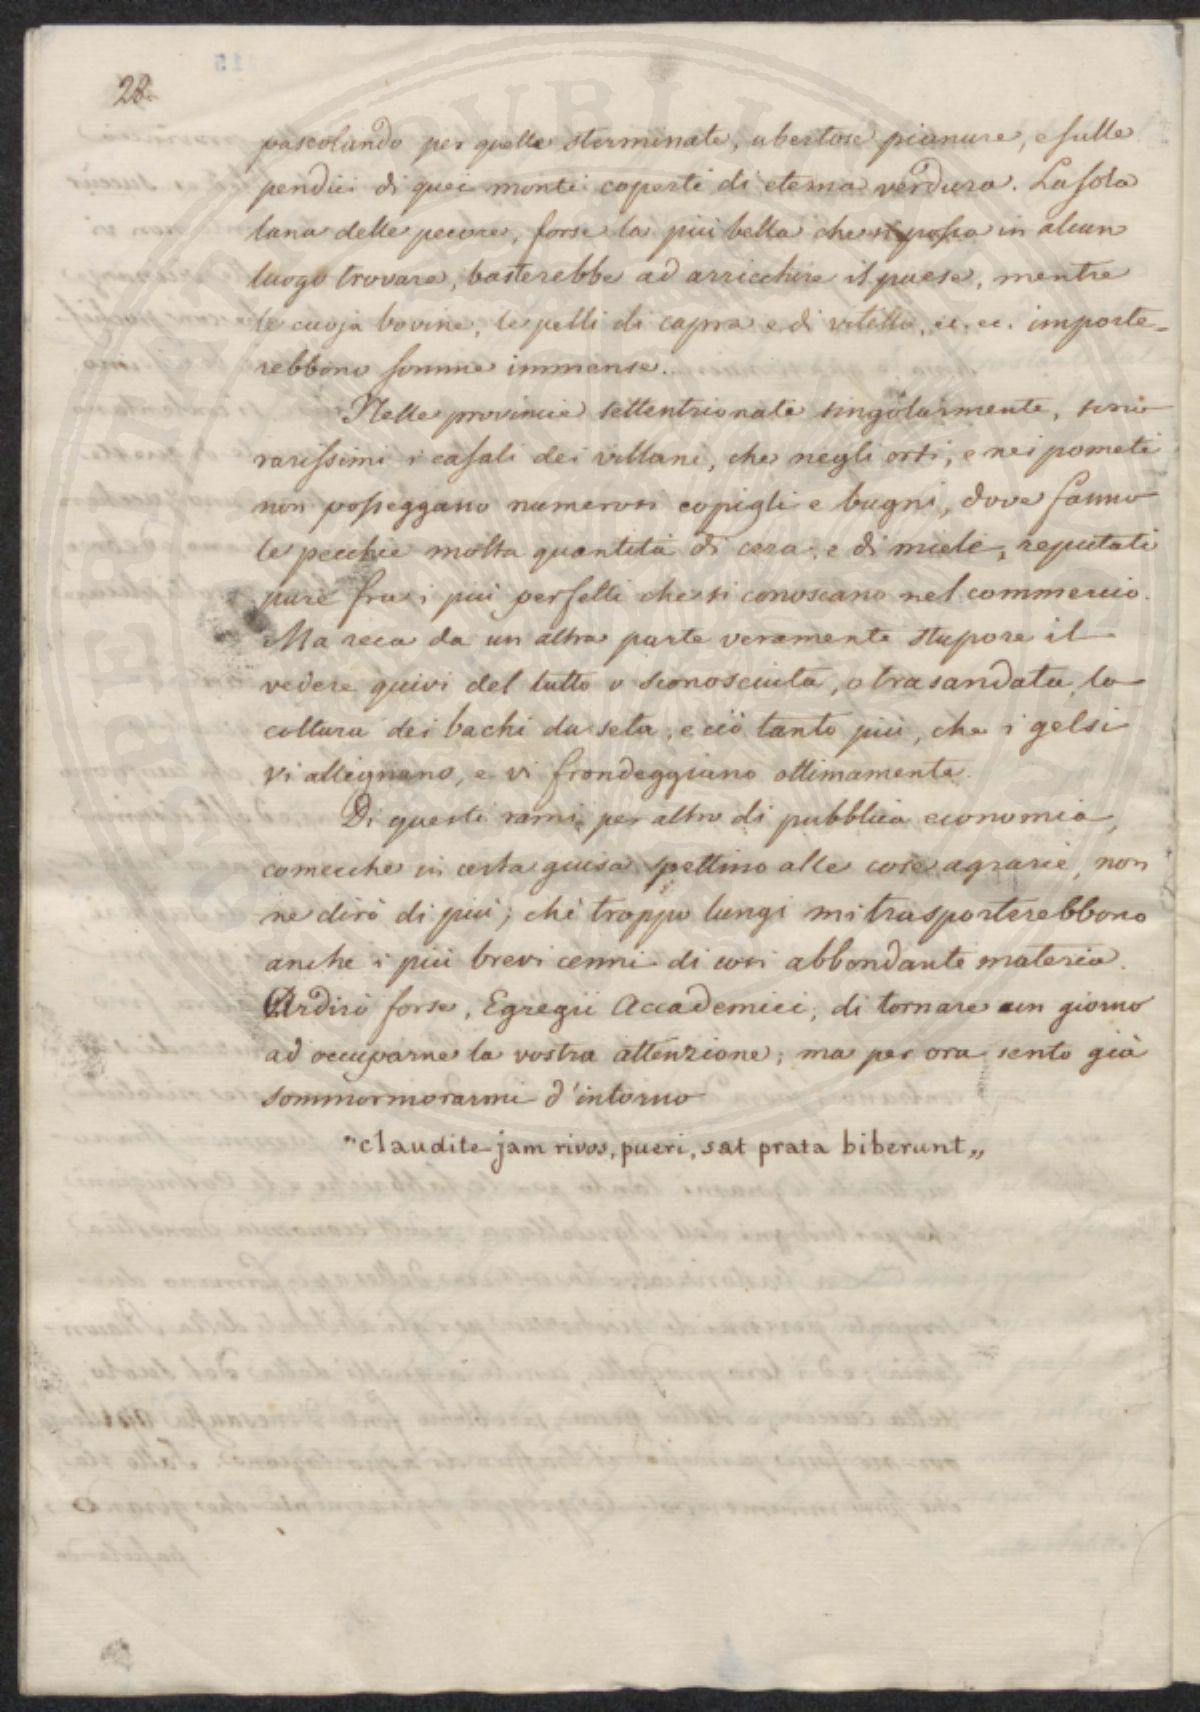 28.
pascolando per quelle sterminate, ubertose pianure, e sulle
pendici di quei monti coperti di eterna verdura. La sola
lana delle pecore, forse la più bella che si possa in alcun
luogo trovare, basterebbe ad arricchire il paese, mentre
le cuoja bovine, le pelli di capra e di vitello, ec. ec. importe=
rebbono somme immense.
Nelle provincie settentrionali singolarmente, sono
rarissimi i casali dei villani, che negli orti, e nei pometi
non posseggano numerosi copigli e bugni, dove fanno
le pecchie molta quantità di cera, e di miele, reputati
pure fra i più perfetti che si conoscano nel commercio.
Ma reca da un altra parte veramente stupore il
vedere quivi del tutto o sconosciuta, o trasandata la
coltura dei bachi da seta, e ciò tanto più, che i gelsi
vi allignano, e vi frondeggiano ottimamente.
Di questi rami per altro di pubblica economia,
comecche in certa guisa spettino alle cose agrarie, non
ne dirò di più; chè troppo lungi mi trasporterebbono
anche i più brevi cenni di così abbondante materia.
Ardirò forse, Egregii Accademici, di tornare un giorno
ad occuparne la vostra attenzione; ma per ora sento già
sommormorarmi d'intorno
"claudite jam rivos, pueri, sat prata biberunt„